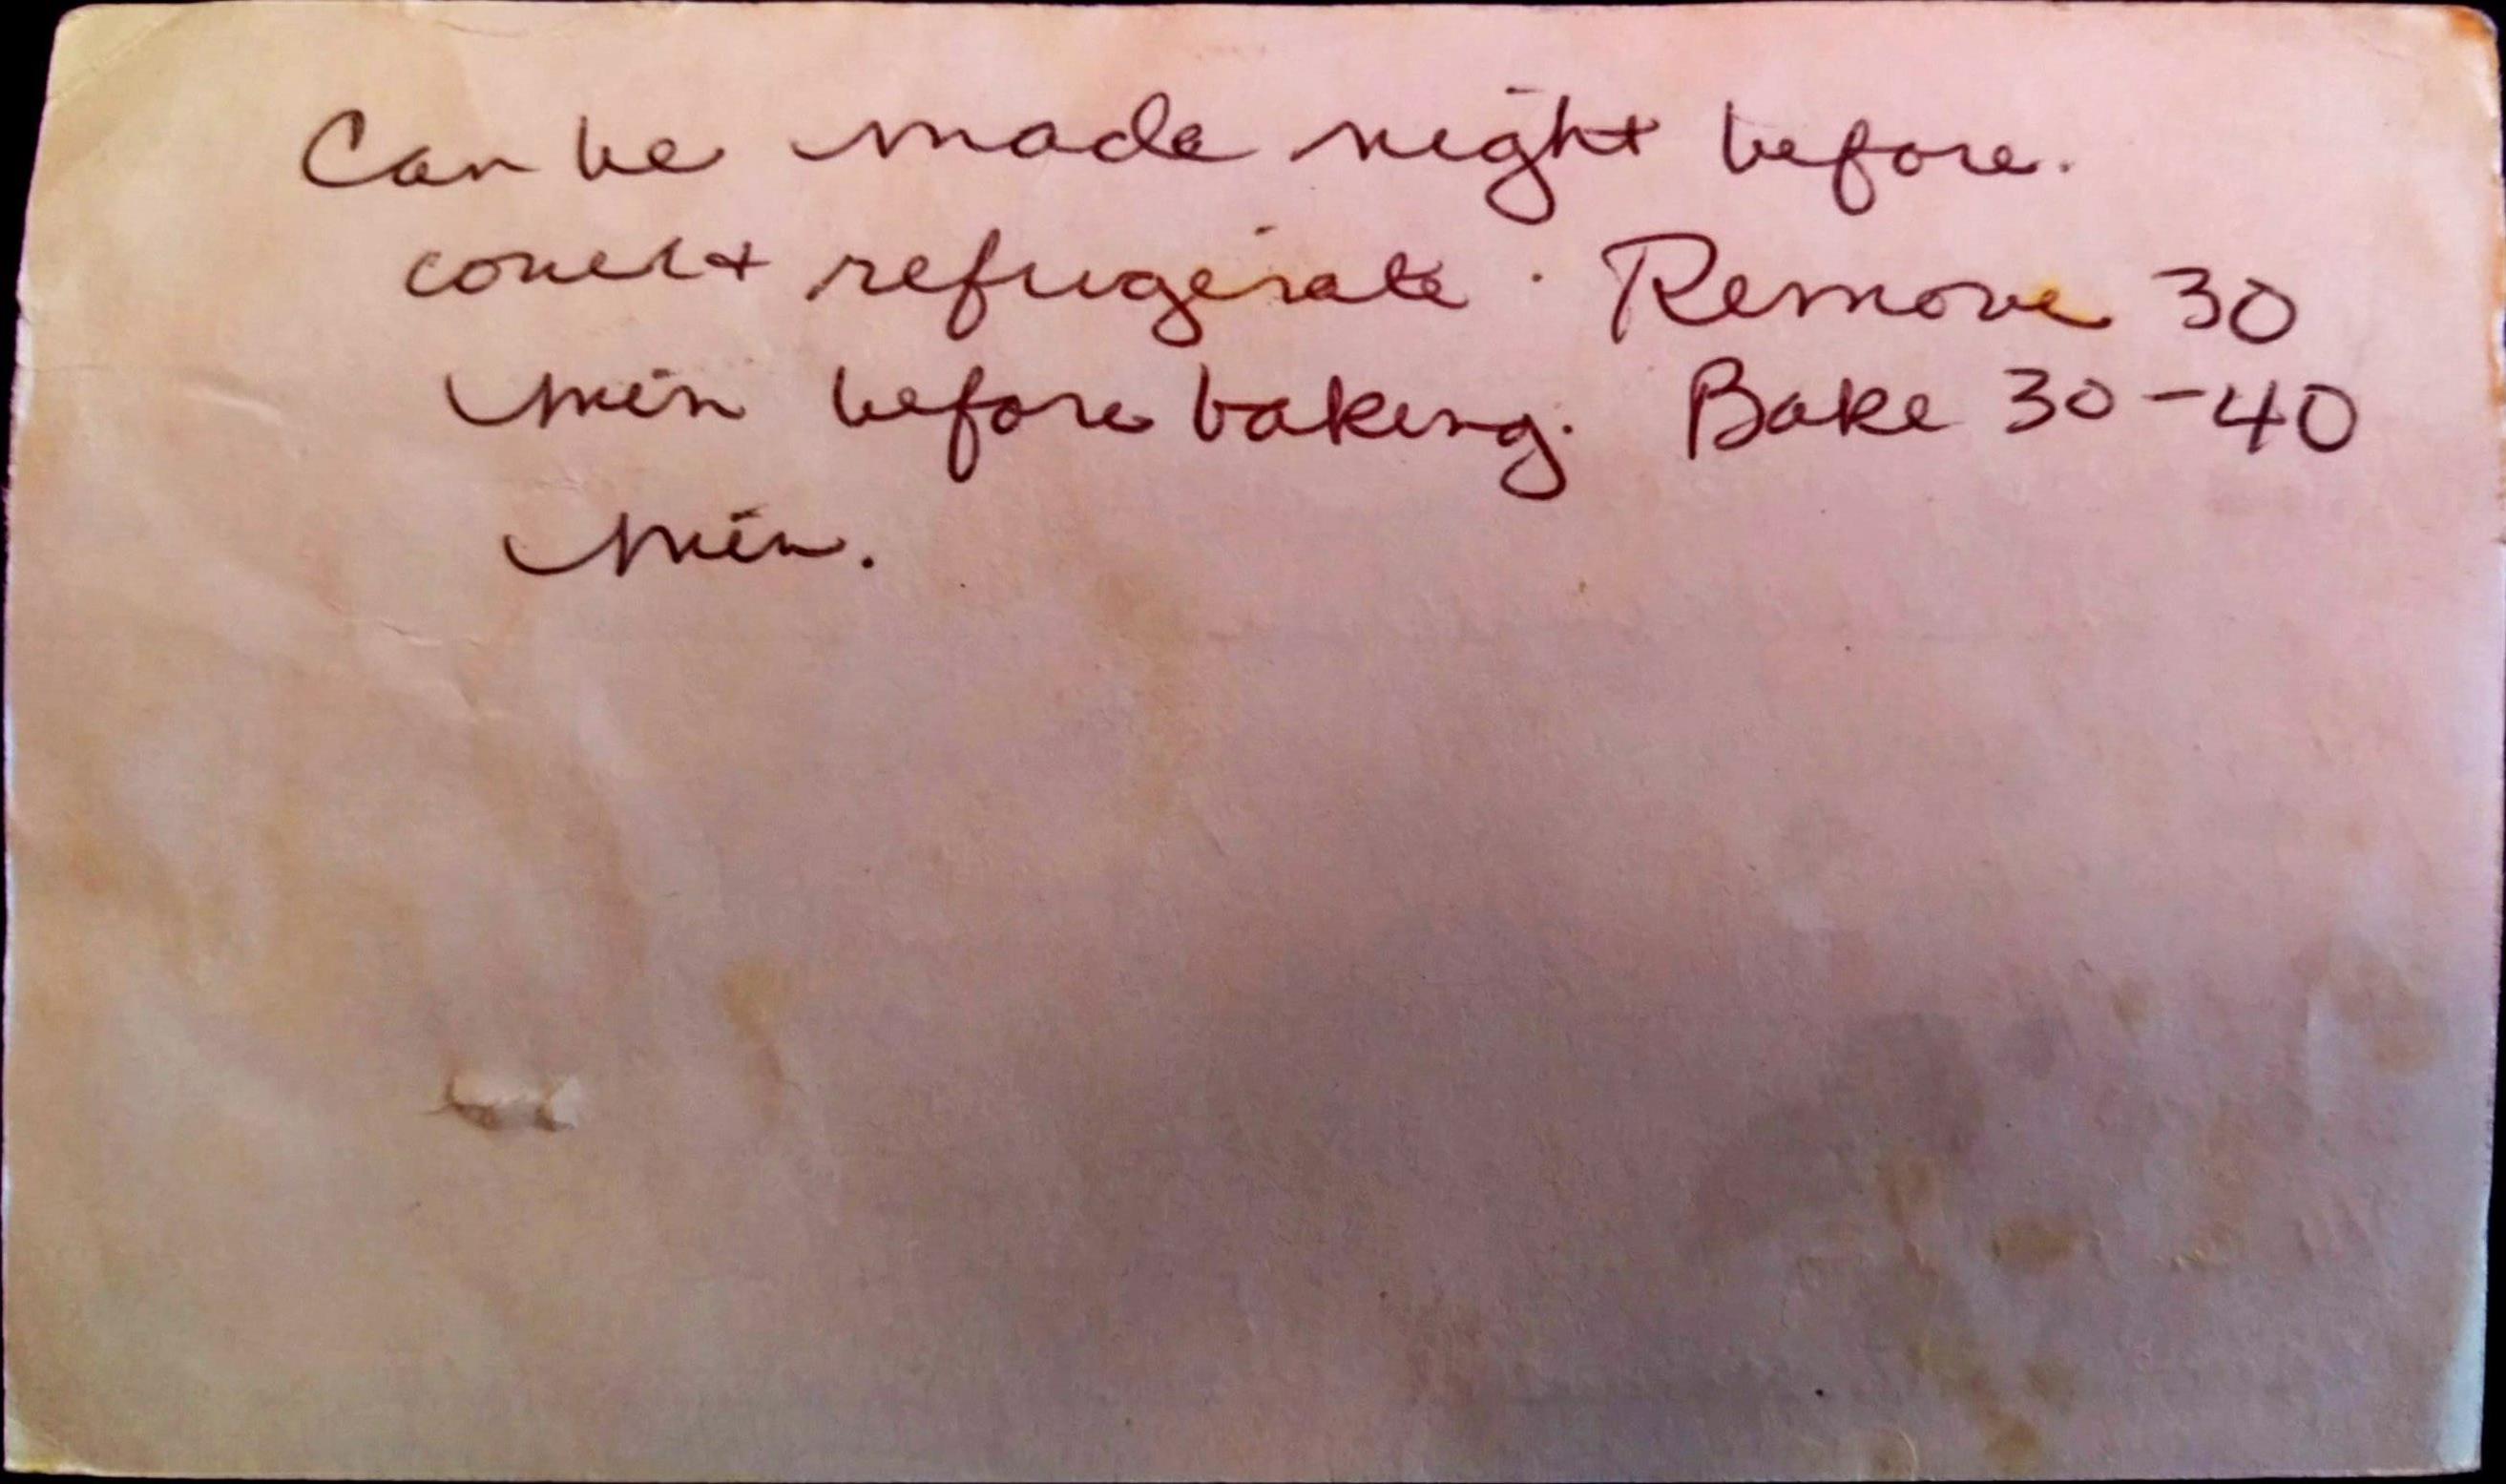 Can be made night before.
cover + refrigerate. Remove 30
min before baking. Bake 30-40
min.